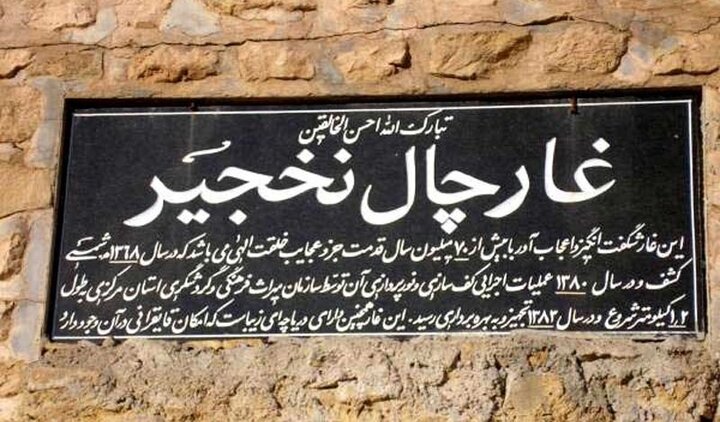 تبارک الله احسن الخالقین
غار چال نخجیر
این غار شگفت انگیز و اعجاب آور با بیش از ۷۰ میلیون سال قدمت جزو عجایب خلقت الهی می باشد که در سال ۱۳۶۸ه شمسی
کشف و در سال ۱۳۸۰ عملیات اجرایی کف سازی و نورپردازی آن توسط سازمان میراث فرهنگی و گردشگری استان مرکزی بطول
۱.۲ کیلومتر شروع و در سال ۱۳۸۲ تجهیز و به بهره برداری رسید. این غار همچنین دارای دریاچه ای زیباست که امکان قایقرانی در آن وجود دارد